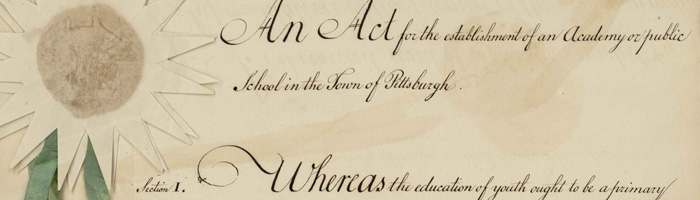 An Act for the establishment of an Academy or public
School in the Town of Pittsburgh.
Section I. Whereas the education of youth ought to be a primary